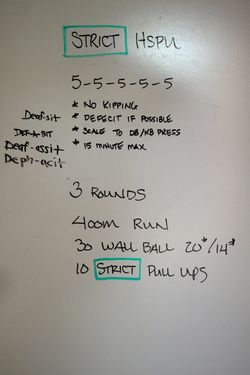 STRICT HSPU
5-5-5-5-5
* NO KIPPING
* DEFECIT IF POSSIBLE
* SCALE TO DB/KB PRESS
* 15 MINUTE MAX
Deaf-sit
DEF-A-SIT
Deaf-assit
Deph-acit
3 ROUNDS
400m RUN
30 WALL BALL 20#/14#
10 STRICT PULL UPS